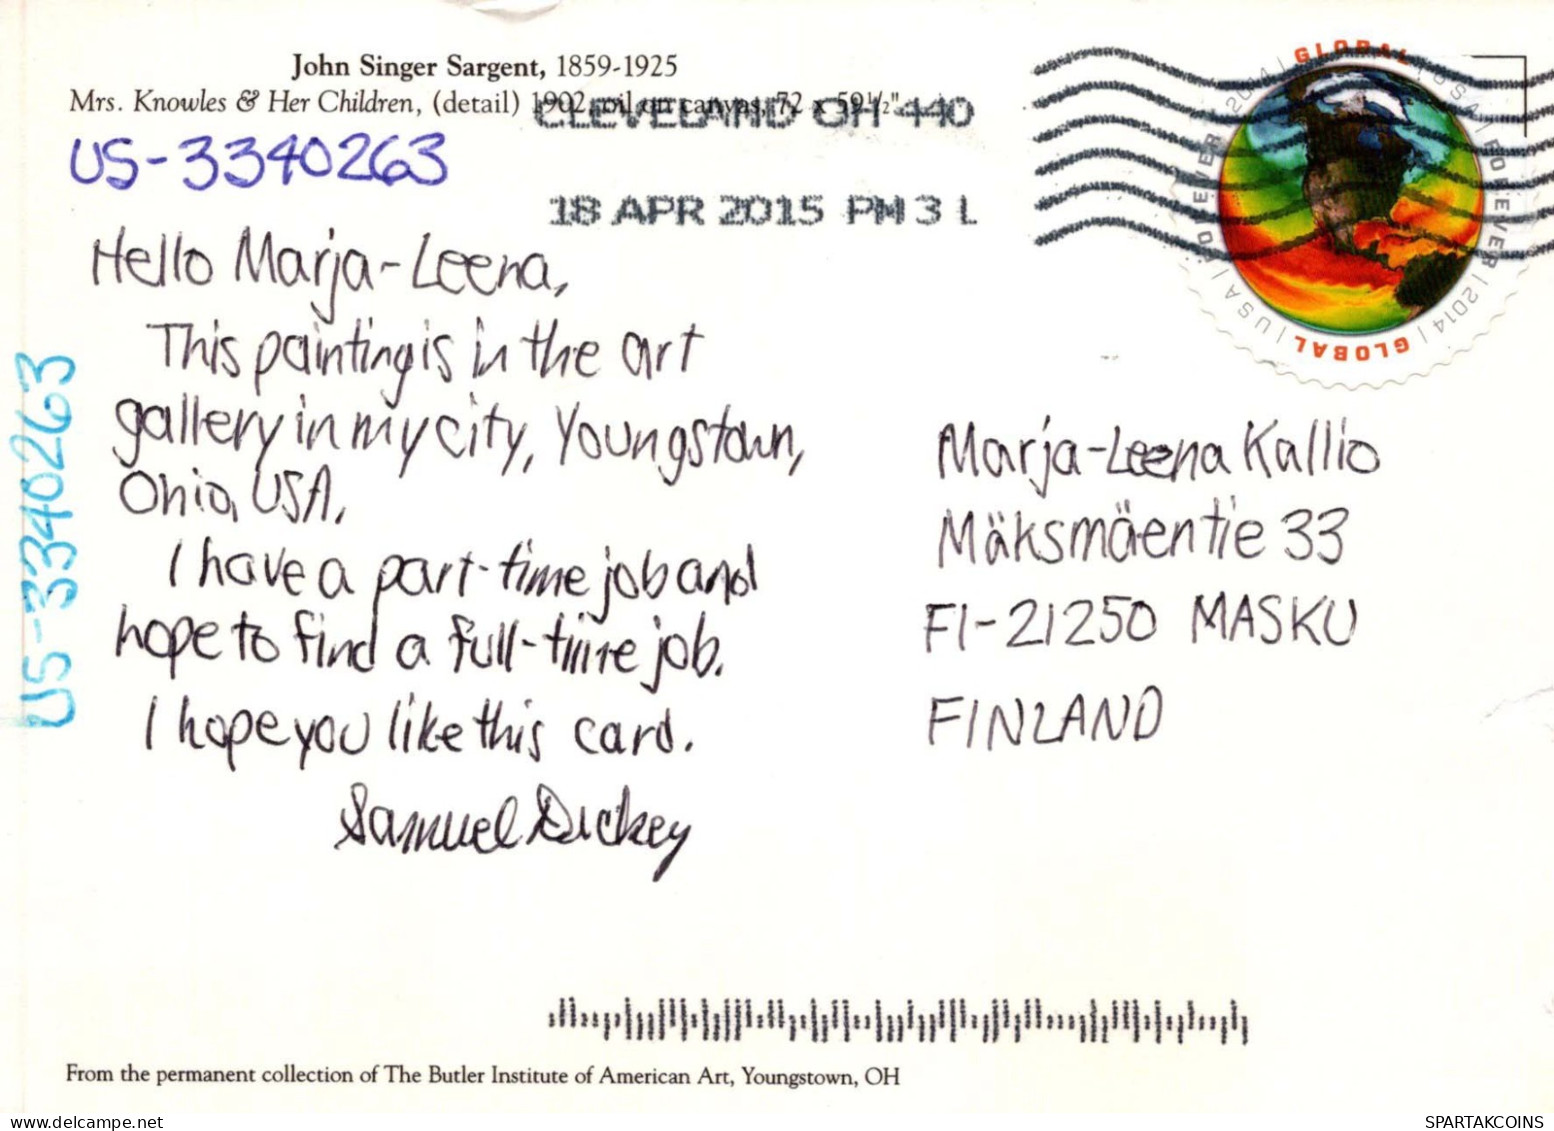 John Singer Sargent, 1859-1925
Mrs. Knowles & Her Children, (detail) 1902, oil on canvas, 72 x 59½"
CLEVELAND OH 440
18 APR 2015 PM 3 L
US-3340263
Hello Marja-Leena,
This painting is in the art
gallery in my city, Youngstown,
Ohio, USA.
I have a part-time job and
hope to find a full-time job.
I hope you like this card.
Samuel Dickey
US-3340263
GLOBAL | USA | FOREVER | 2014 | GLOBAL | USA | FOREVER | 2014 |
Marja-Leena Kallio
Mäksmäentie 33
FI-21250 MASKU
FINLAND
From the permanent collection of The Butler Institute of American Art, Youngstown, OH
www.delcampe.net
SPARTAKCOINS